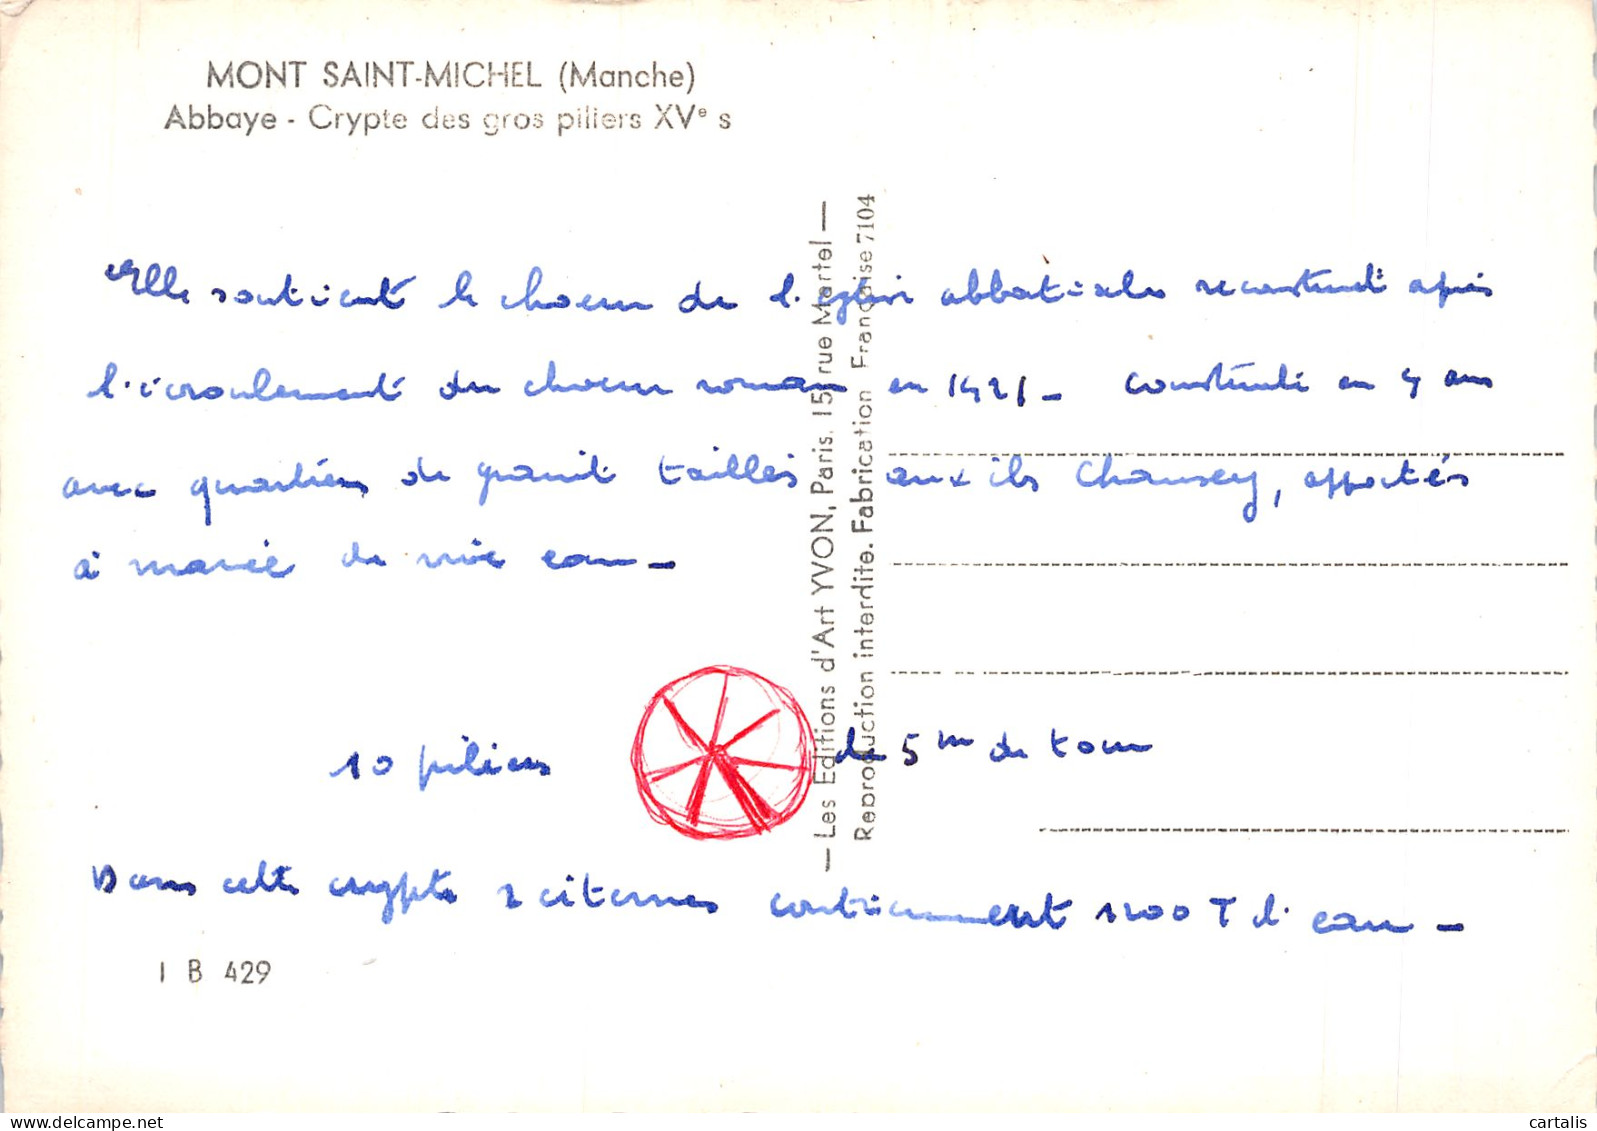 MONT SAINT-MICHEL (Manche)
Abbaye - Crypte des gros piliers XVe s
Elle soutient le choeur de l'église abbatiale reconstruit après
l'écroulement du choeur roman en 1421 - construite en 4 ans
avec quartiers de granit taillés aux iles Chausey, apportés
à marée de vive eau -
10 piliers de 5 m de tour
Dans cette crypte 2 citernes contiennent 1200 T d'eau -
I B 429
— Les Editions d'Art YVON, Paris, 15, rue Martel —
Reproduction interdite. Fabrication Française 7104
cartalis